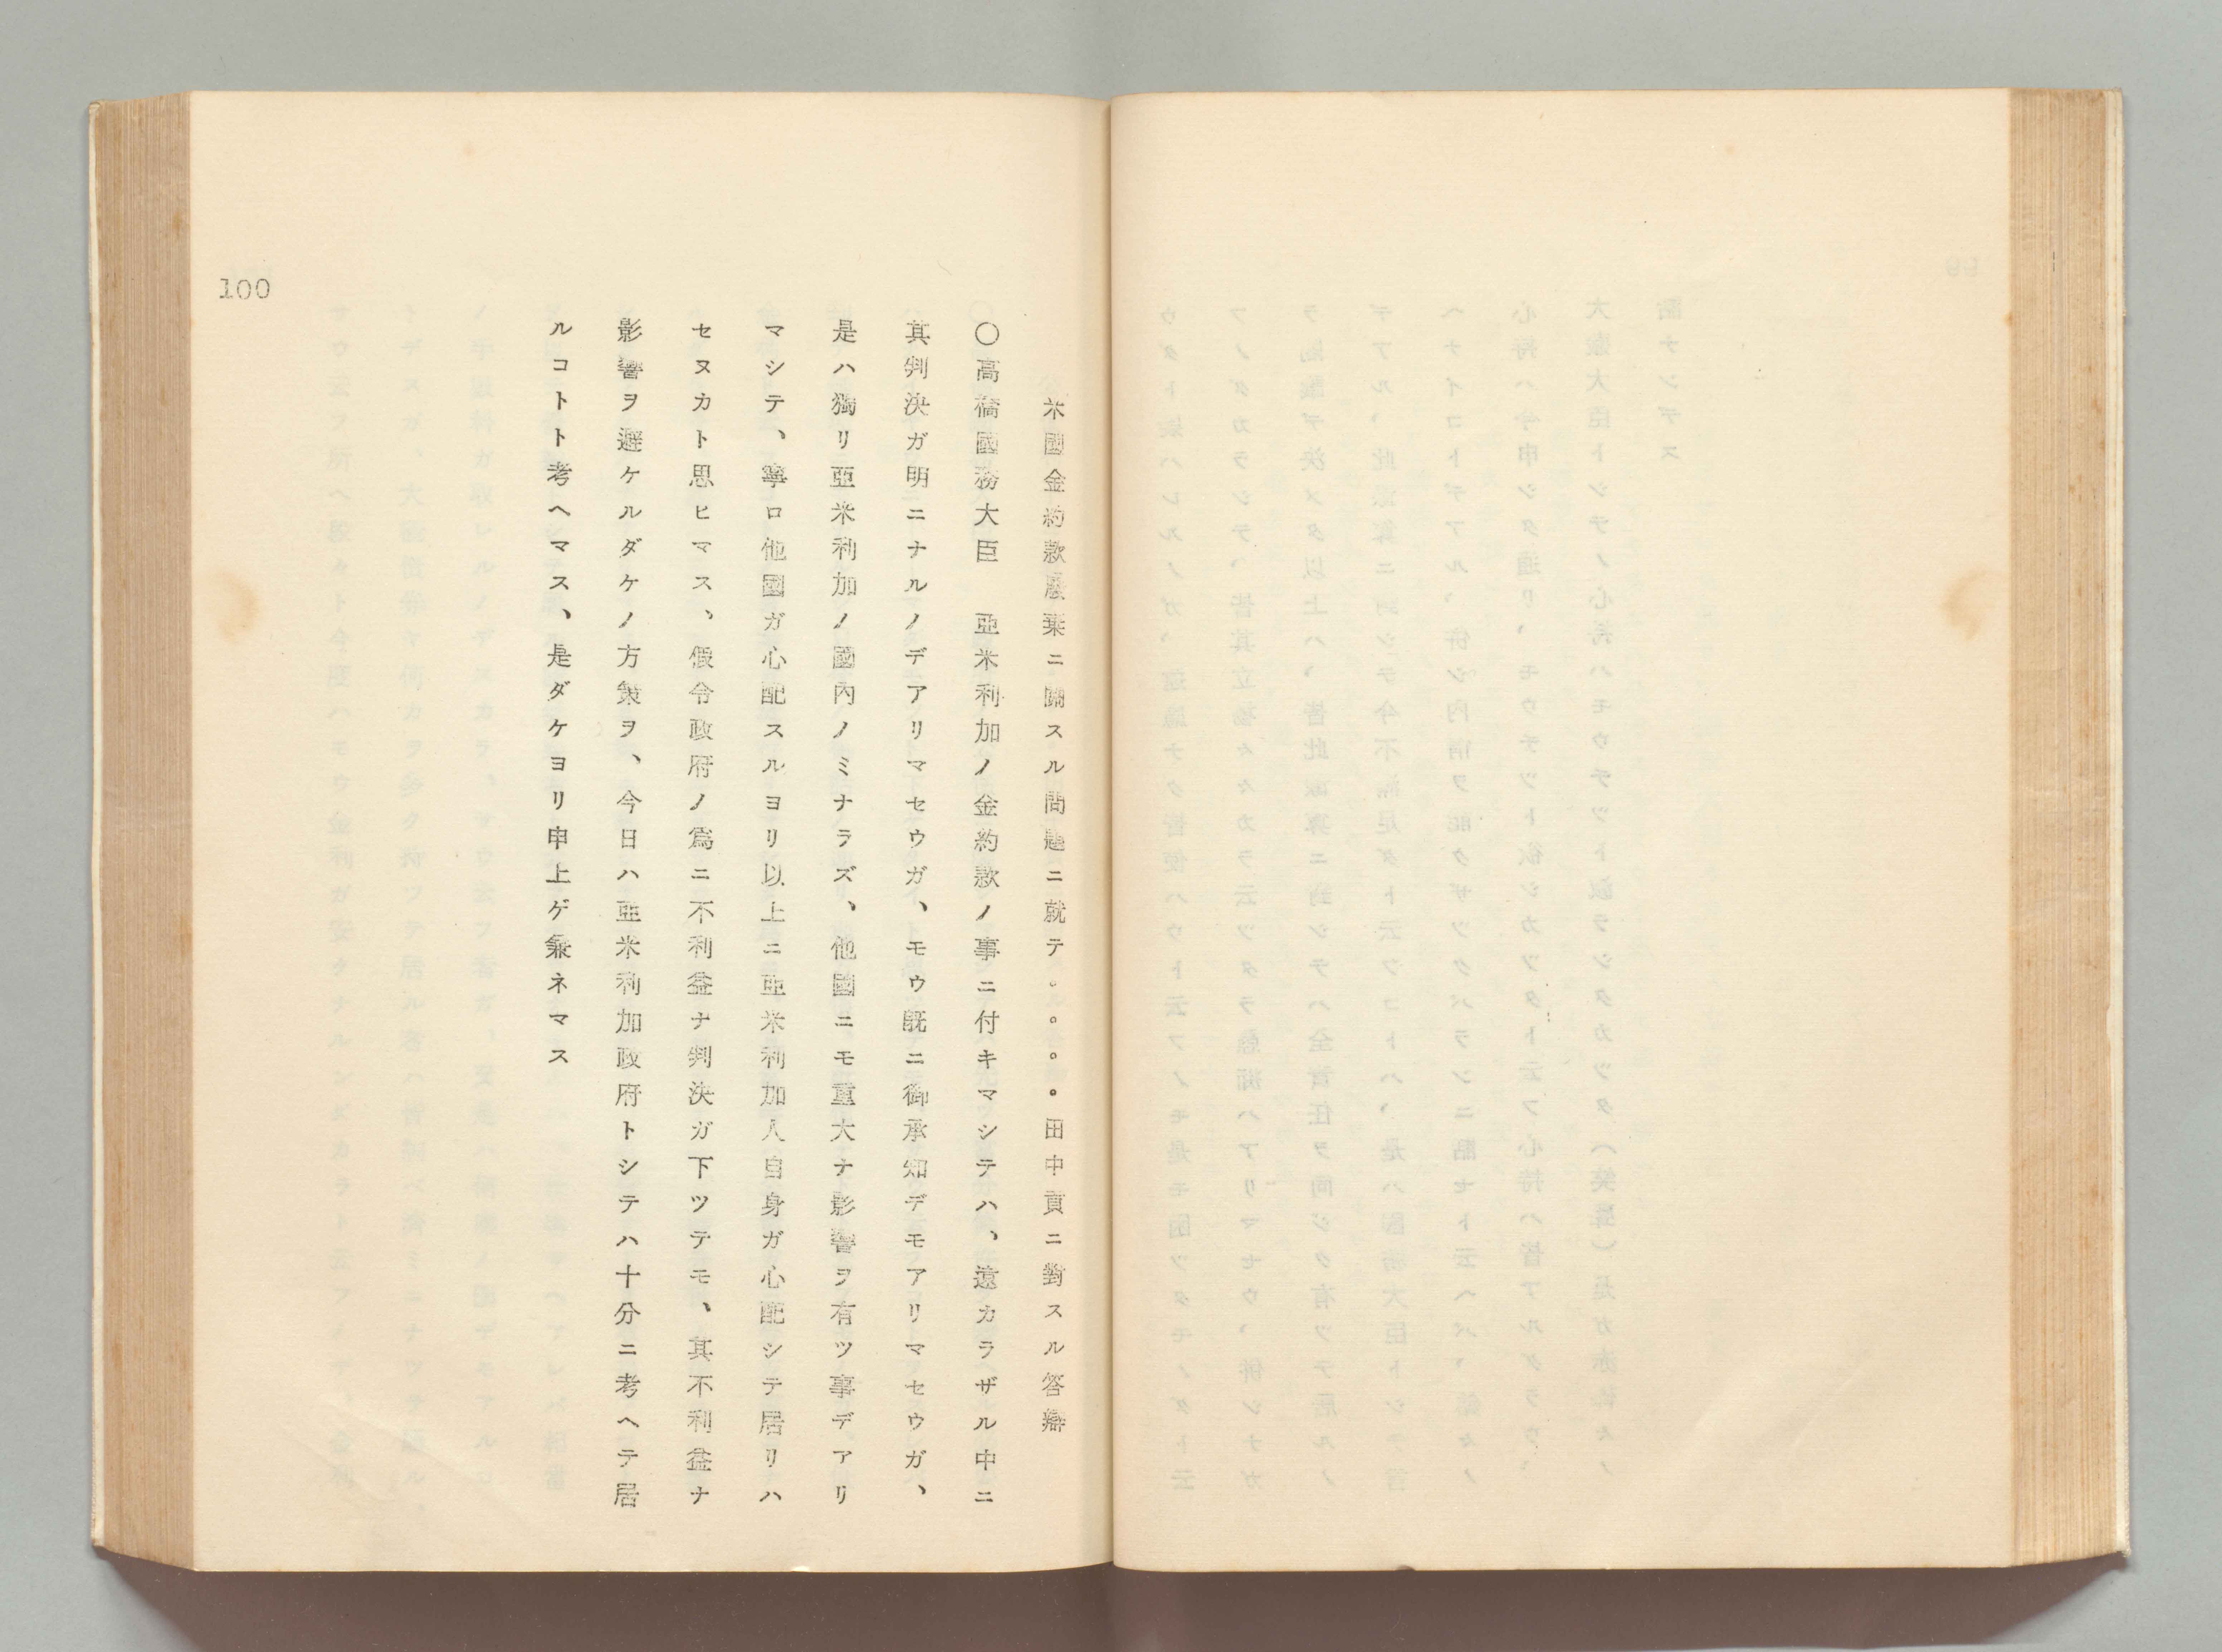 米國金約款廢棄ニ關スル問題ニ就テ。。。。田中貢ニ對スル答辯
〇高橋國務大臣　亞米利加ノ金約款ノ事ニ付キマシテハ、遠カラザル中ニ
其判決ガ明ニナルノデアリマセウガ、モウ既ニ御承知デモアリマセウガ、
是ハ獨リ亞米利加ノ國內ノミナラズ、他國ニモ重大ナ影響ヲ有ツ事デアリ
マシテ、寧ロ他國ガ心配スルヨリ以上ニ亞米利加人自身ガ心配シテ居リハ
セヌカト思ヒマス、假令政府ノ爲ニ不利益ナ判決ガ下ツテモ、其不利益ナ
影響ヲ避ケルダケノ方策ヲ、今日ハ亞米利加政府トシテハ十分ニ考ヘテ居
ルコトト考ヘマス、是ダケヨリ申上ゲ兼ネマス
100